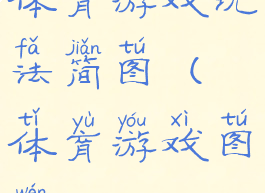 体育游戏玩
fǎ jiǎn tú
法简图(
tǐ yù yóu xì tú
体育游戏图
wén